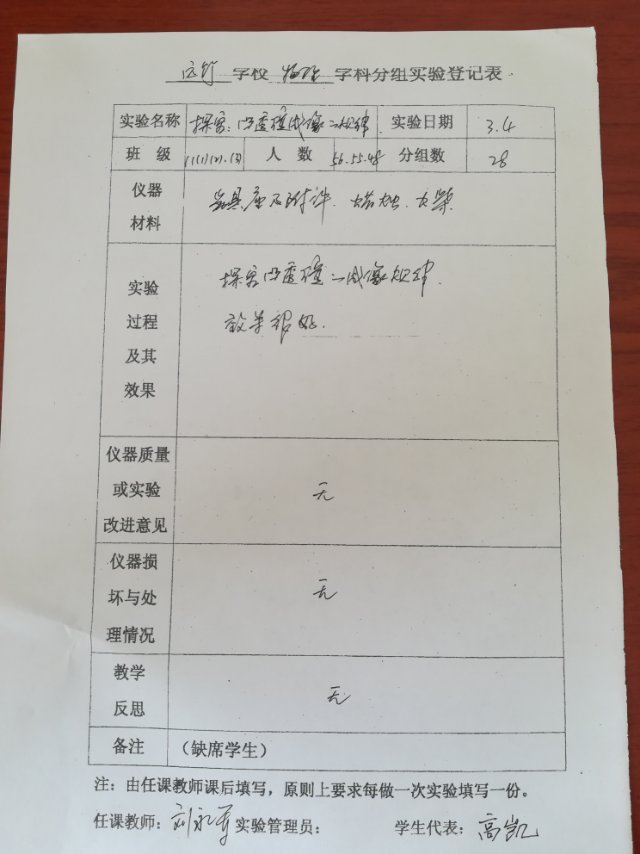 学校 物理 学科分组实验登记表
实验名称 探究凸透镜成像的规律 实验日期 3.4
班级 人数 56.55.48 分组数 28
仪器材料 光具座及附件、蜡烛、火柴
实验过程及其效果 探究凸透镜的成像规律.
效果很好.
仪器质量或实验改进意见 无
仪器损坏与处理情况 无
教学反思 无
备注 (缺席学生)
注：由任课教师课后填写，原则上要求每做一次实验填写一份。
任课教师：刘永军 实验管理员： 学生代表：高凯